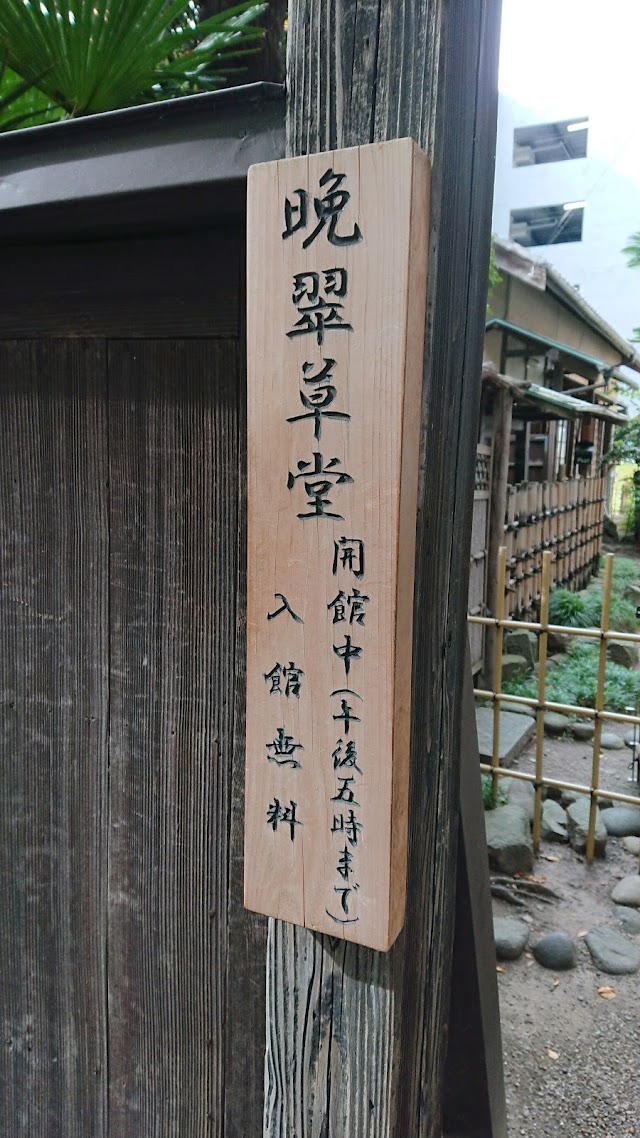 晩翠草堂
開館中(午後五時まで)
入館無料